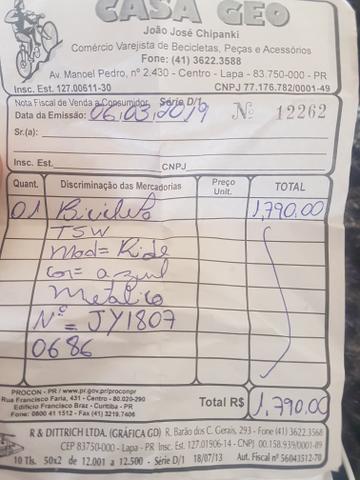 CASA GEO
João José Chipanki
Comércio Varejista de Bicicletas, Peças e Acessórios
Fone: (41) 3622.3588
Av. Manoel Pedro, nº 2.430 - Centro - Lapa - 83.750-000 - PR
Insc. Est. 127.00611-30 CNPJ 77.176.782/0001-49
Nota Fiscal de Venda a Consumidor - Série D/1
Data da Emissão: 06,03,2019 Nº 12262
Sr.(a):
Insc. Est. CNPJ
Quant. Discriminação das Mercadorias Preço Unit. TOTAL
01 Bicicleta 1,790.00
TSW
Mod= Ride
cor= azul
Metalico
Nº= JY1807
0686
PROCON - PR / www.pr.gov.br/proconpr
Rua Francisco Faria, 431 - Centro - 80.020-290
Edifício Francisco Braz - Curitiba - PR
Fone: 0800 41 1512 - Fax (41) 3219.7406
Total R$ 1,790.00
R & DITTRICH LTDA. (GRÁFICA GD) R. Barão dos C. Gerais, 293 - Fone (41) 3622.3568
CEP 83750-000 - Lapa - PR Insc. Est. 127.01906-14 - CNPJ 00.158.939/0001-89
10 Tls. 50x2 de 12.001 a 12.500 - Série D/1 18/07/13 Aut. Fiscal nº 56043512-70